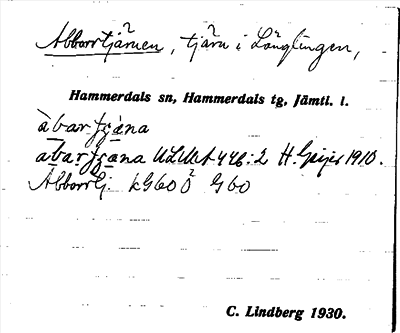 Abborrtjärnen, tjärn i Långlingen,
Hammerdals sn, Hammerdals tg, Jämtl. l.
àbarfçàna
abarfçana ULMA 446:2 H. Geijer 1910.
Abborrtj. kG60Ö G60
C. Lindberg 1930.